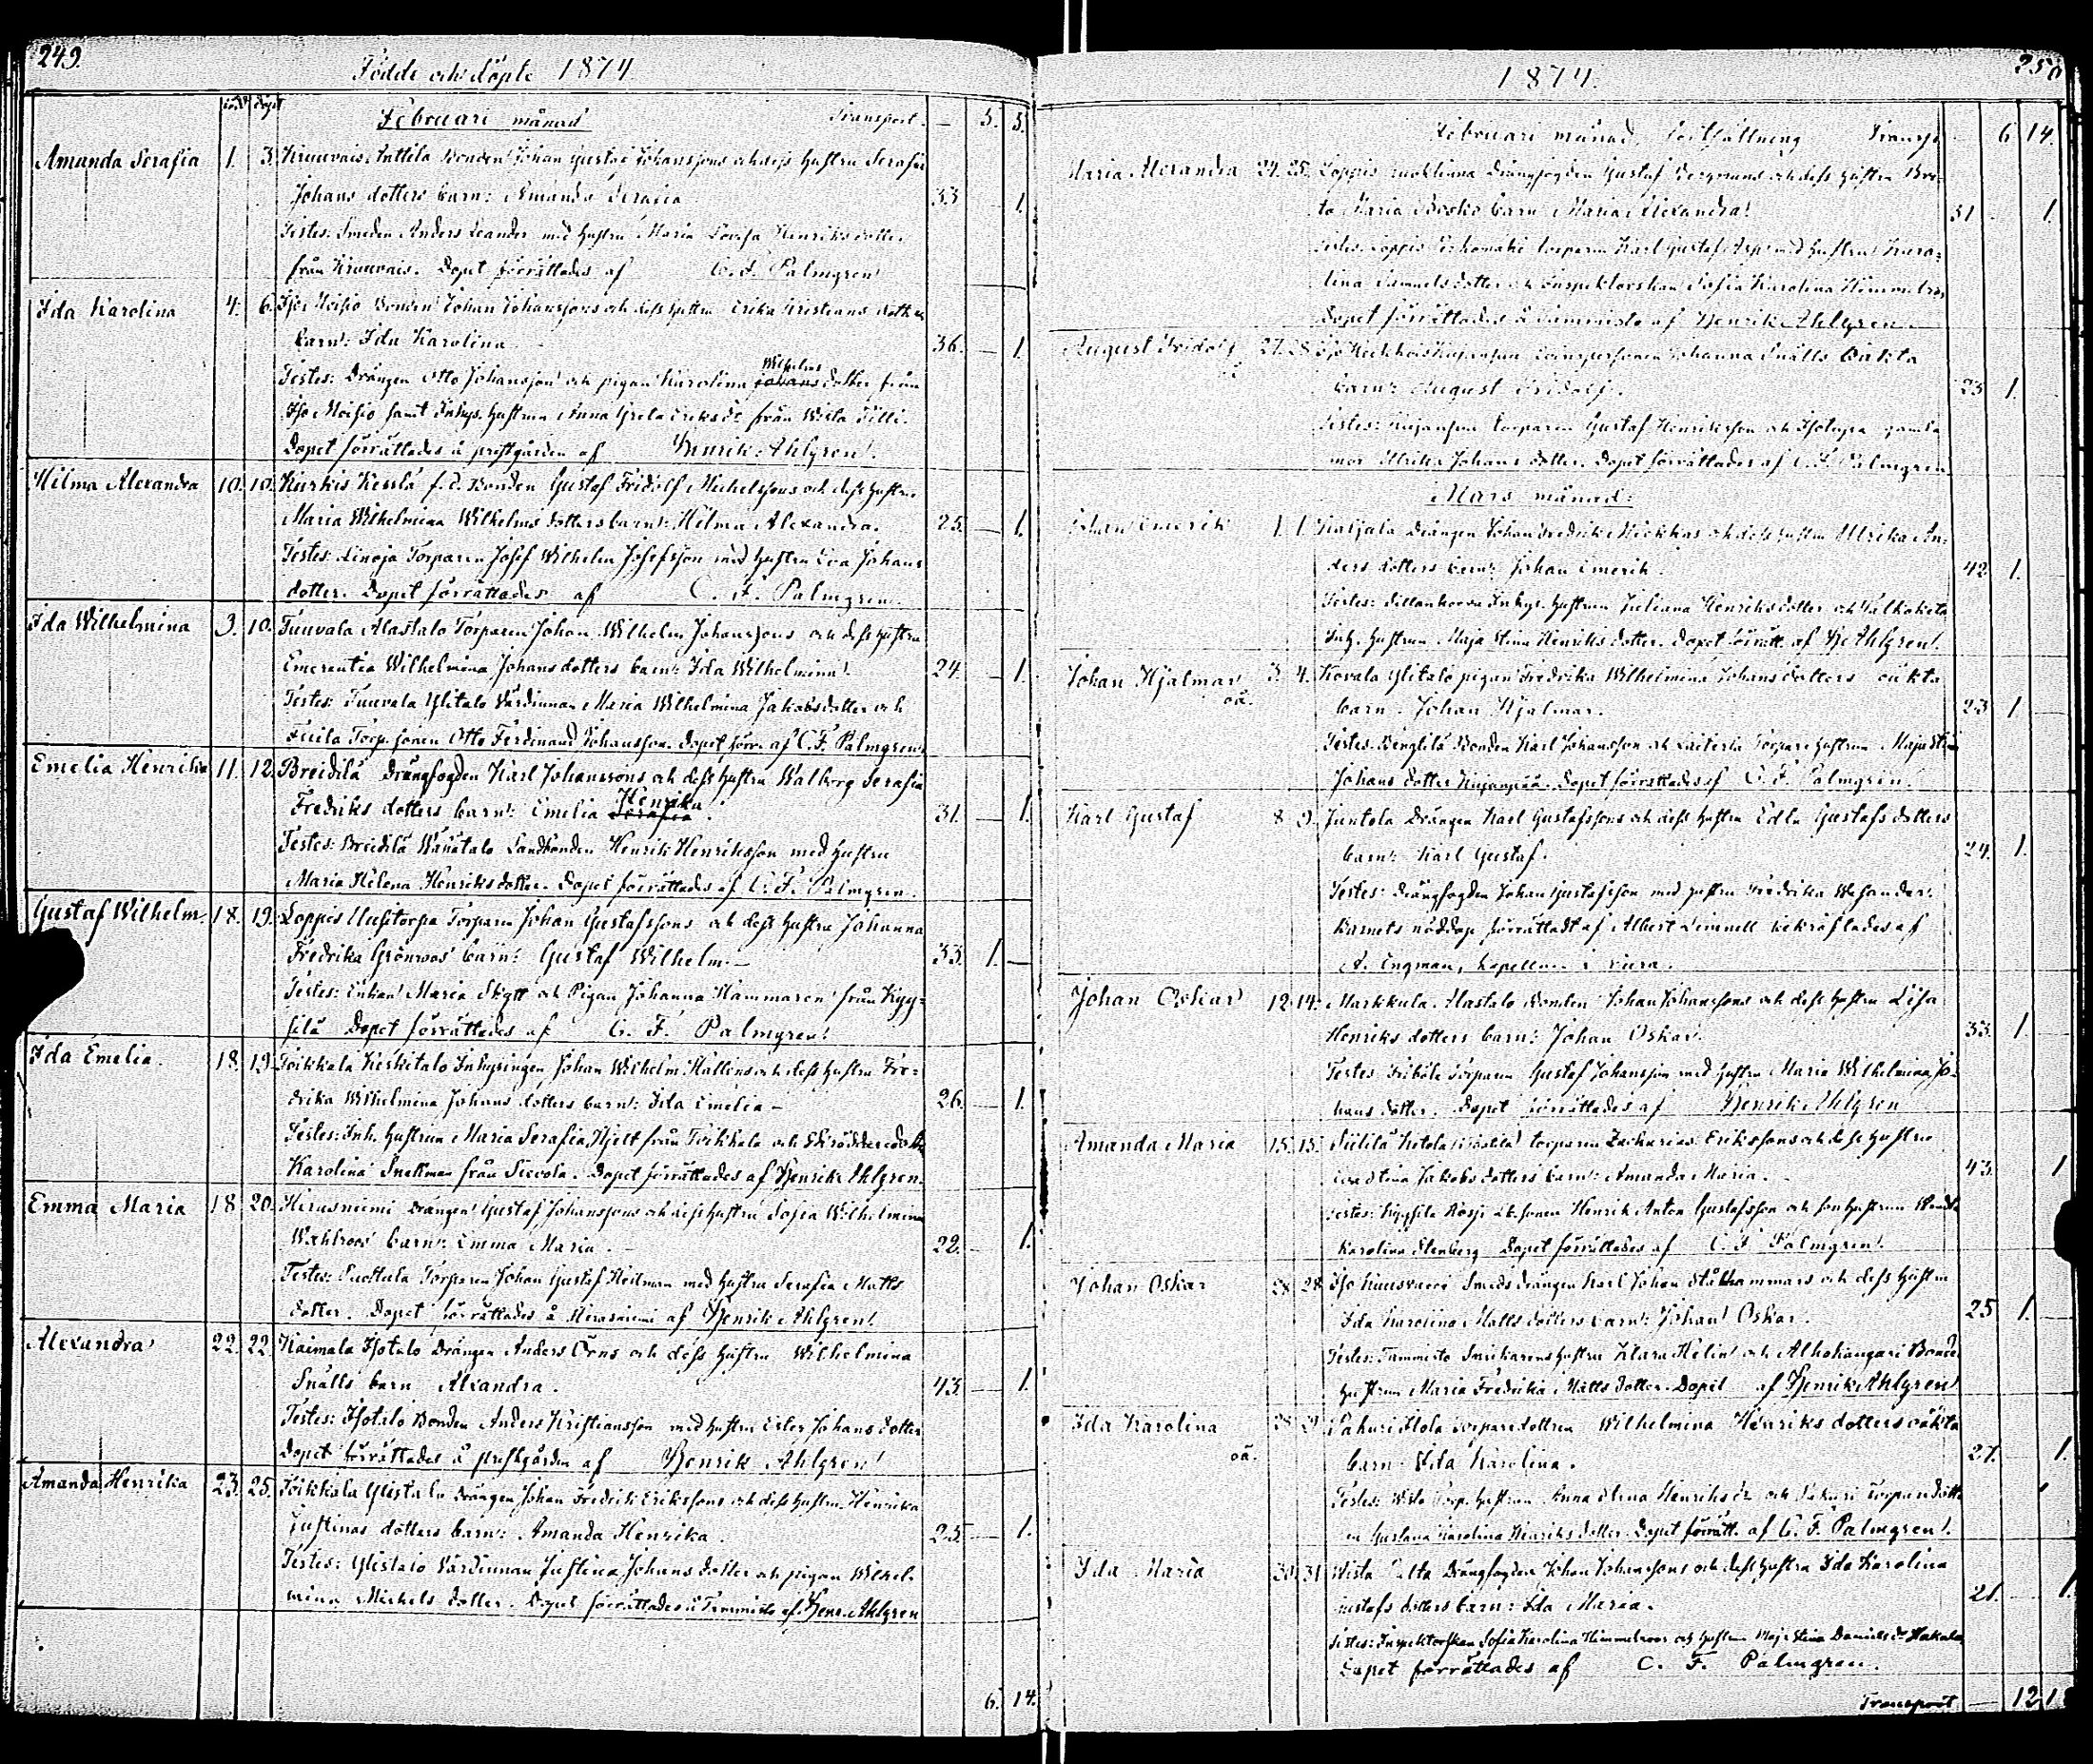 249.
Födde och döpte 1874.
född döpt
Februari månad Transport. — 5. 5.
Amanda Serafia 1. 3. Anttila Bonden Johan Gustaf Johanssons och dess hustru Serafia
Johans dotters barn: Amanda Serafia 33 1.
Testes: Smeden Anders Leander med hustru Maria Lovisa Henriksdotter
från Dopet förrättades af C. F. Palmgren
Ida Karolina 4. 6. Iso Moisio Bonden Johan Johanssons och dess hustru Erika Kristians dotters
barn: Ida Karolina. 36. — 1.
Wilhelms
Testes: Drängen Otto Johansson och pigan Karolina Johans dotter från
Iso Moisio samt Inhys. hustrun Anna Greta Eriksdr från Wista Tilli.
Dopet förrättades å prestgården af Henrik Ahlgren.
Hilma Alexandra 10. 10. Kurkis f. d. Bonden Gustaf Fridolf Michelssons och dess hustru
Maria Wilhelmina Wilhelms dotters barn: Hilma Alexandra. 25. — 1.
Testes: Linoja Torparen Josef Wilhelm Josefsson med hustru Eva Johans
dotter. Dopet förrättades af C. F. Palmgren.
Ida Wilhelmina 3. 10. Tuuvala Alastalo Torparen Johan Wilhelm Johanssons och dess hustru
Emerentia Wilhelmina Johansdotters barn: Ida Wilhelmina. 24. — 1.
Testes: Tuuvala Ylitalo Värdinnan Maria Wilhelmina Jakobsdotter och
Torp. sonen Otto Ferdinand Johansson. Dopet förr. af C. F. Palmgren.
Emelia Henrika 11. 12. Breidilä Drängfogden Karl Johanssons och dess hustru Walborg Serafia
Henrika
Fredriks dotters barn: Emelia Serafia. 31. — 1.
Testes: Breidilä Wanatalo Landbonden Henrik Henriksson med hustru
Maria Helena Henriksdotter. Dopet förrättades af C. F. Palmgren.
Gustaf Wilhelm. 18. 19. Loppis Uusitorpa Torparen Johan Gustafssons och dess hustru Johanna
Fredrika Grönroos barn: Gustaf Wilhelm. — 33. 1. —
Testes: Enkan Maria Skytt och Pigan Johanna Hammaren från Kyy-
silä Dopet förrättades af C. F. Palmgren.
Ida Emelia. 18. 19. Toikkala Keskitalo Inhysingen Johan Wilhelm Hallens och dess hustru Fre-
drika Wilhelmina Johans dotters barn: Ida Emelia — 26. — 1.
Testes: Inh. hustrun Maria Serafia Hjelt från Toikkala och Skräddaredott.
Karolina Snellman från Sievola. Dopet förrättades af Henrik Ahlgren.
Emma Maria 18. 20. Hirasniemi Drängen Gustaf Johanssons och dess hustru Sofia Wilhelmina
Wahlroos barn: Emma Maria. — 22. — 1.
Testes: Suottula Torparen Johan Gustaf Heilman med hustru Serafia Matts
dotter. Dopet förrättades å Hirasniemi af Henrik Ahlgren.
Alexandra 22. 22. Kaimala Isotalo Drängen Anders Örns och dess hustru Wilhelmina
Snälls barn Alexandra. 43. — 1.
Testes: Isotalo Bonden Anders Kristiansson med hustru Ester Johans dotter
Dopet förrättades å prestgården af Henrik Ahlgren.
Amanda Henrika 23. 25. Toikkala Ylistalo Drängen Johan Fredrik Erikssons och dess hustru Henrika
Justinas dotters barn: Amanda Henrika. 25. — 1.
Testes: Ylistalo Värdinnan Justina Johans dotter och pigan Wilhel-
mina Michels dotter. Dopet förrättades å Tammisto af Henr. Ahlgren
6. 14.
250
1874.
Februari månad, fortsättning Transp. — 6 14.
Maria Alexandra 24. 25. Loppis Drängfogden Gustaf Bergmans och dess hustru Bri-
ta Maria barn Maria Alexandra. 31 1.
Testes: Loppis torparen Karl Gustaf med hustru Karo-
lina Samuelsdotter och Inspektorskan Sofia Karolina Himmelroos
Dopet förrättades å Tammisto af Henrik Ahlgren.
August Fridolf 27. 28. Johanna Snälls oäkta
oä.
barn: August Fridolf. 23 1.
Testes: torparen Gustaf Henriksson och Isotupa gamla
mor Ulrika Johans dotter. Dopet förrättades af C. F. Palmgren
Mars månad:
Johan Emerik 1. 1. Drängen Johan Fredrik och dess hustru Ulrika An-
ders dotters barn: Johan Emerik. 42 1.
Testes: Sillankorva Inhys. hustrun Juliana Henriksdotter och
Inh. hustrun Maja Stina Henriks dotter. Dopet förrätt. af H. Ahlgren.
Johan Hjalmar 3. 4. Kovala Ylitalo pigan Fredrika Wilhelmina Johans dotters oäkta
oä.
barn: Johan Hjalmar. 23 1
Testes: Bonden Karl Johansson och Torpare hustrun Maja Stina
Johans dotter Dopet förrättades af C. F. Palmgren.
Karl Gustaf 8 9. Juntola Drängen Karl Gustafssons och dess hustru Edla Gustafs dotters
barn: Karl Gustaf. 24. 1.
Testes: Drängfogden Johan Gustafsson med hustru Fredrika
Barnets nöddop förrättadt af Albert bekräftades af
A. Engman, kapellan i
Johan Oskar 12. 14. Markkula Alastalo Bonden Johan Johanssons och dess hustru Lisa
Henriks dotters barn: Johan Oskar. 33. 1.
Testes: Torparen Gustaf Johansson med hustru Maria Wilhelmina Jo-
hans dotter. Dopet förrättades af Henrik Ahlgren
Amanda Maria 15. 15. torparen Zacharias Erikssons och dess hustru
Jakobs dotters barn: Amanda Maria. 43. 1
Testes: Kyysilä sonen Henrik Anton Gustafsson och sonhustrun
Karolina Stenberg Dopet förrättades af C. F. Palmgren.
Johan Oskar 28 28 Iso Smeds drängen Karl Johan Stålhammars och dess hustru
Ida Karolina Matts dotters barn: Johan Oskar. 25 1.
Testes: Tammisto hustru Klara Helin och Alhokangari Bonde
hustrun Maria Fredrika Matts dotter. Dopet af Henrik Ahlgren
Ida Karolina 28 29 Pakuri torparedottren Wilhelmina Henriks dotters oäkta
oä.
barn: Ida Karolina. 27. 1.
Testes: Wista Torp. hustrun Anna Stina Henriksdr och Pakuri Torparedott.
en Gustava Karolina Henriks dotter. Dopet förrätt. af C. F. Palmgren.
Ida Maria 30. 31 Wista Drängfogden Johan Johanssons och dess hustru Ida Karolina
Gustafs dotters barn: Ida Maria. 21. 1.
Testes: Inspektorskan Sofia Karolina Himmelroos och hustrun Maja Stina Daniels dr Hakala
Dopet förrättades af C. F. Palmgren.
Transport — 12